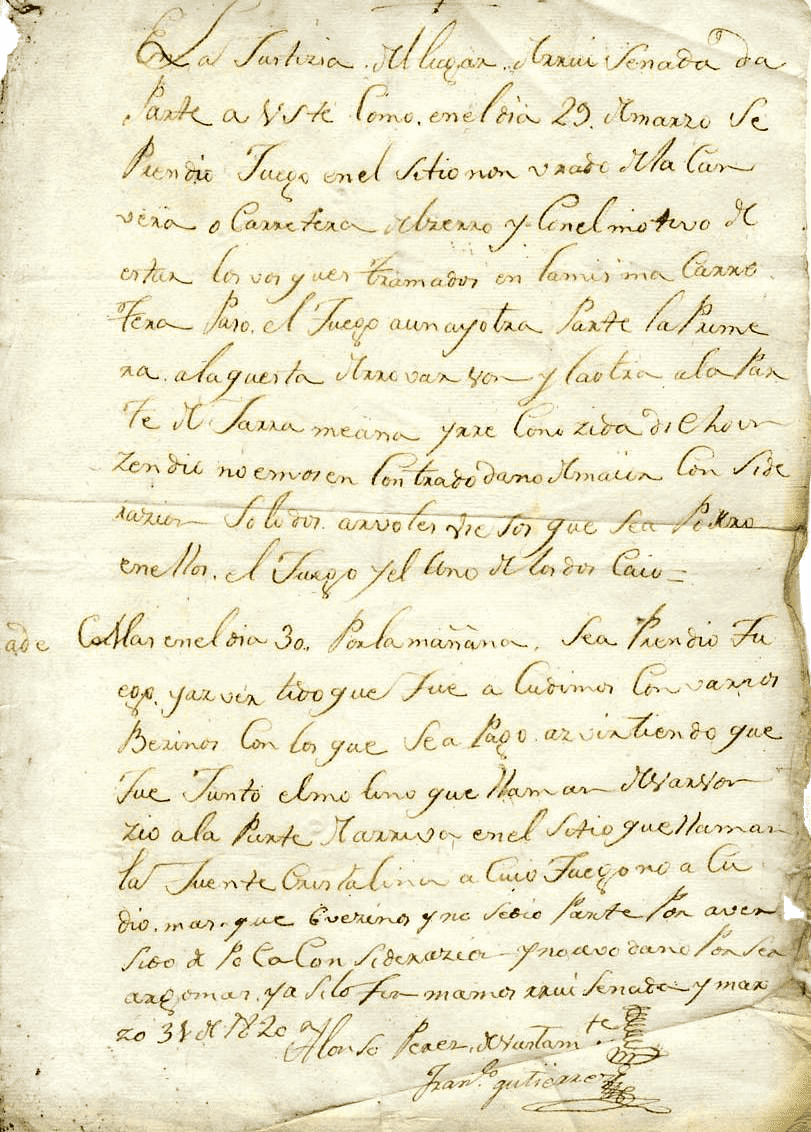 En La Justizia del lugar de rruisenada da
Parte a Vste Como en el dia 29 de marzo Se
Prendio Fuego en el Sitio nonvrado de la Can
vera o Carretera del zerro y Con el motivo de
estar los vosques tramados en la misma Carre
tera Paso el Fuego a una y otra Parte la Prime
ra a la questa de rrovarvon y la otra a la Par
te de Jarrameana y rreconozida dicho in
zendio no emos encontrado dano de maior Conside
razion Solo dos arvoles viejos que sea
en ellos el Fuego y el Uno de los dos Caio =
Mas en el dia 30 Por la mañana Sea Prendio Fu
ego y azvertido que Fue a Cudimos Con varrios
Bezinos Con los que Sea Pago azvirtiendo que
Fue Junto el molino que llaman de varvon
zio a la Parte de arriva en el Sitio que llaman
la Fuente Cristalina a Cuio Fuego no a Cu
dio mas que 6 vezinos y no se dio Parte Por aver
sido de Poca Considerazion y no avo dano Por Ser
argomas y asi lo Firmamos rruisenada y mar
zo 31 de 1820
Alonso Perez de
Fran.co gutierrez